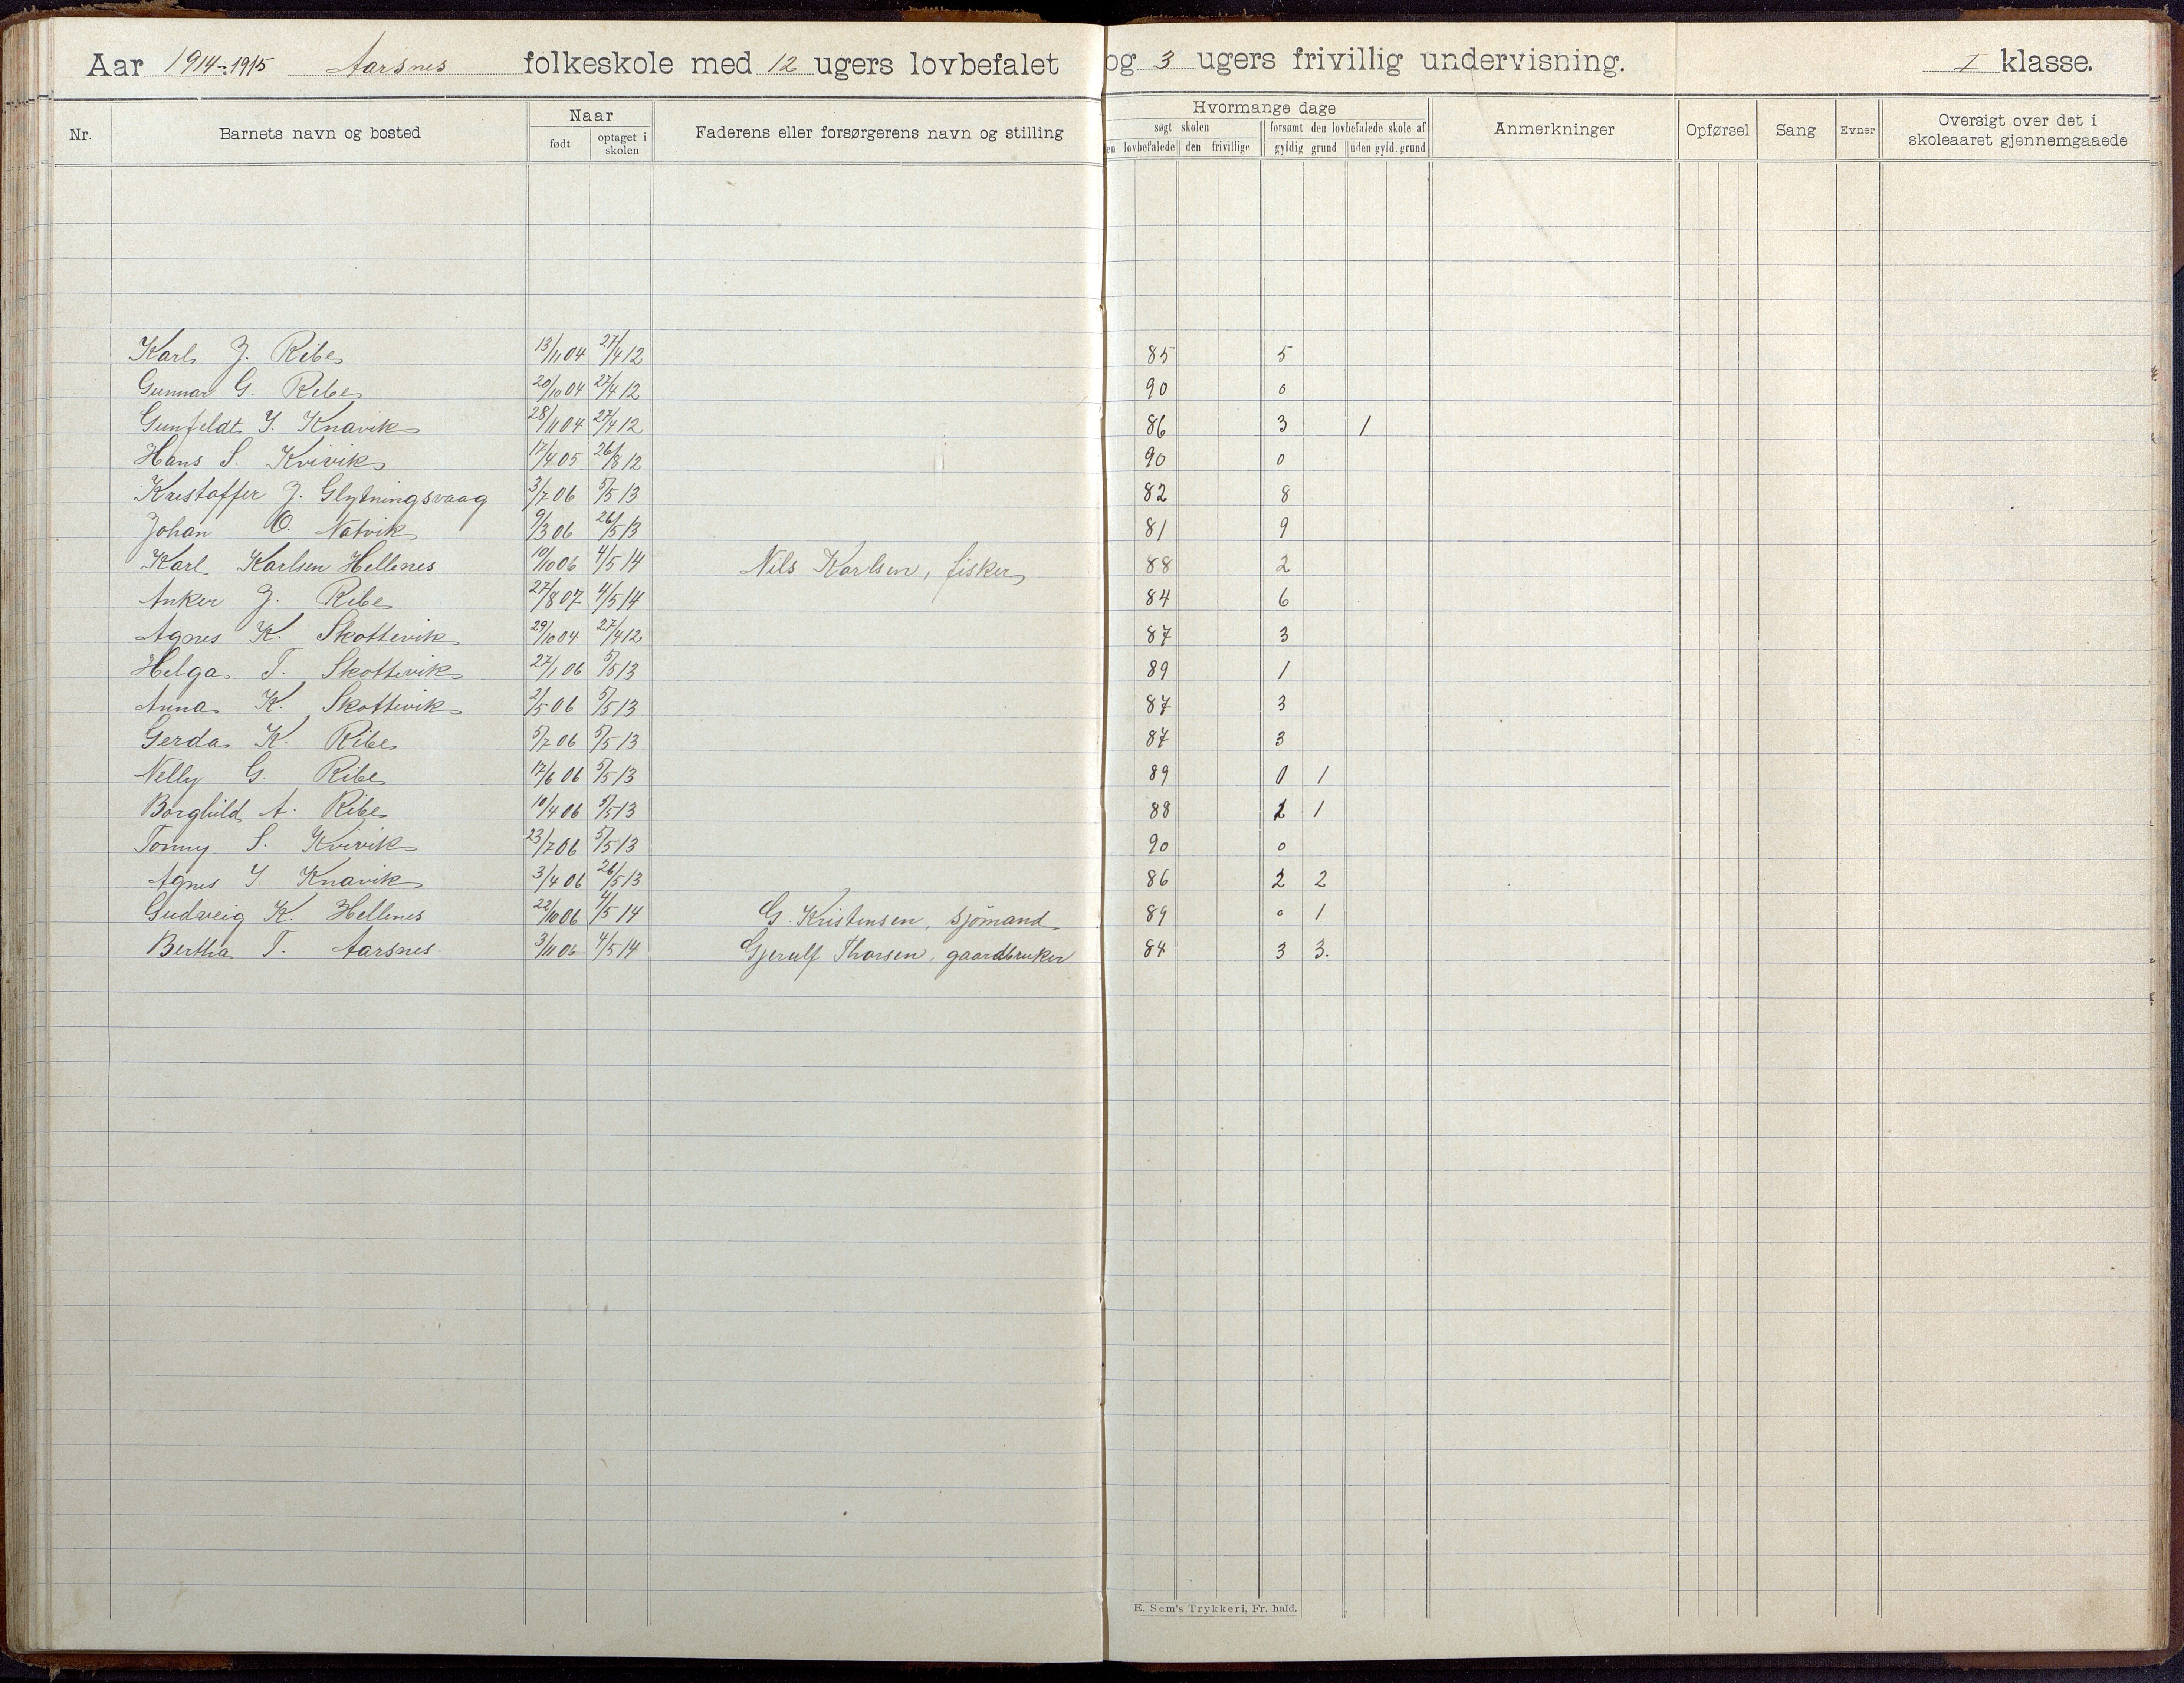 Aar 1914-1915 Aarsnes folkeskole med 12 ugers lovbefalet og 3 ugers frivillig undervisning. I klasse.
Nr. Barnets navn og bosted Naar født optaget i skolen Faderens eller forsørgerens navn og stilling Hvormange dage søgt skolen en lovbefalede den frivillige forsømt den lovbefalede skole af gyldig grund uden gyld. grund Anmerkninger Opførsel Sang Evner Oversigt over det i skoleaaret gjennemgaaede
Karl J. Ribe 13/11 04 27/4 12 85 5
Gunnar G. Ribe 20/10 04 27/4 12 90 0
Gunfeldt Y. Knavik 28/11 04 27/4 12 86 3 1
Hans S. Kvivik 17/4 05 26/8 12 90 0
Kristoffer J. Glytningsvaag 3/7 06 5/5 13 82 8
Johan O. Natvik 9/3 06 26/5 13 81 9
Karl Karlsen Hellenes 10/10 06 4/5 14 Nils Karlsen, fisker 88 2
Anker J. Ribe 27/8 07 4/5 14 84 6
Agnes K. Skottevik 29/10 04 27/4 12 87 3
Helga T. Skottevik 27/1 06 5/5 13 89 1
Anna K. Skottevik 2/5 06 5/5 13 87 3
Gerda K. Ribe 5/7 06 5/5 13 87 3
Nelly G. Ribe 17/6 06 5/5 13 89 0 1
Borghild A. Ribe 10/4 06 5/5 13 88 1
Tonny S. Kvivik 23/7 06 5/5 13 90 0
Agnes Y. Knavik 3/4 06 26/5 13 86 2 2
Gudveig K. Hellenes 22/10 06 4/5 14 G. Kristensen, sjømand 89 0 1
Bertha T. Aarsnes. 3/11 06 4/5 14 Gjerulf Thorsen, gaardbruker 84 3 3.
E. Sem's Trykkeri, Fr. hald.